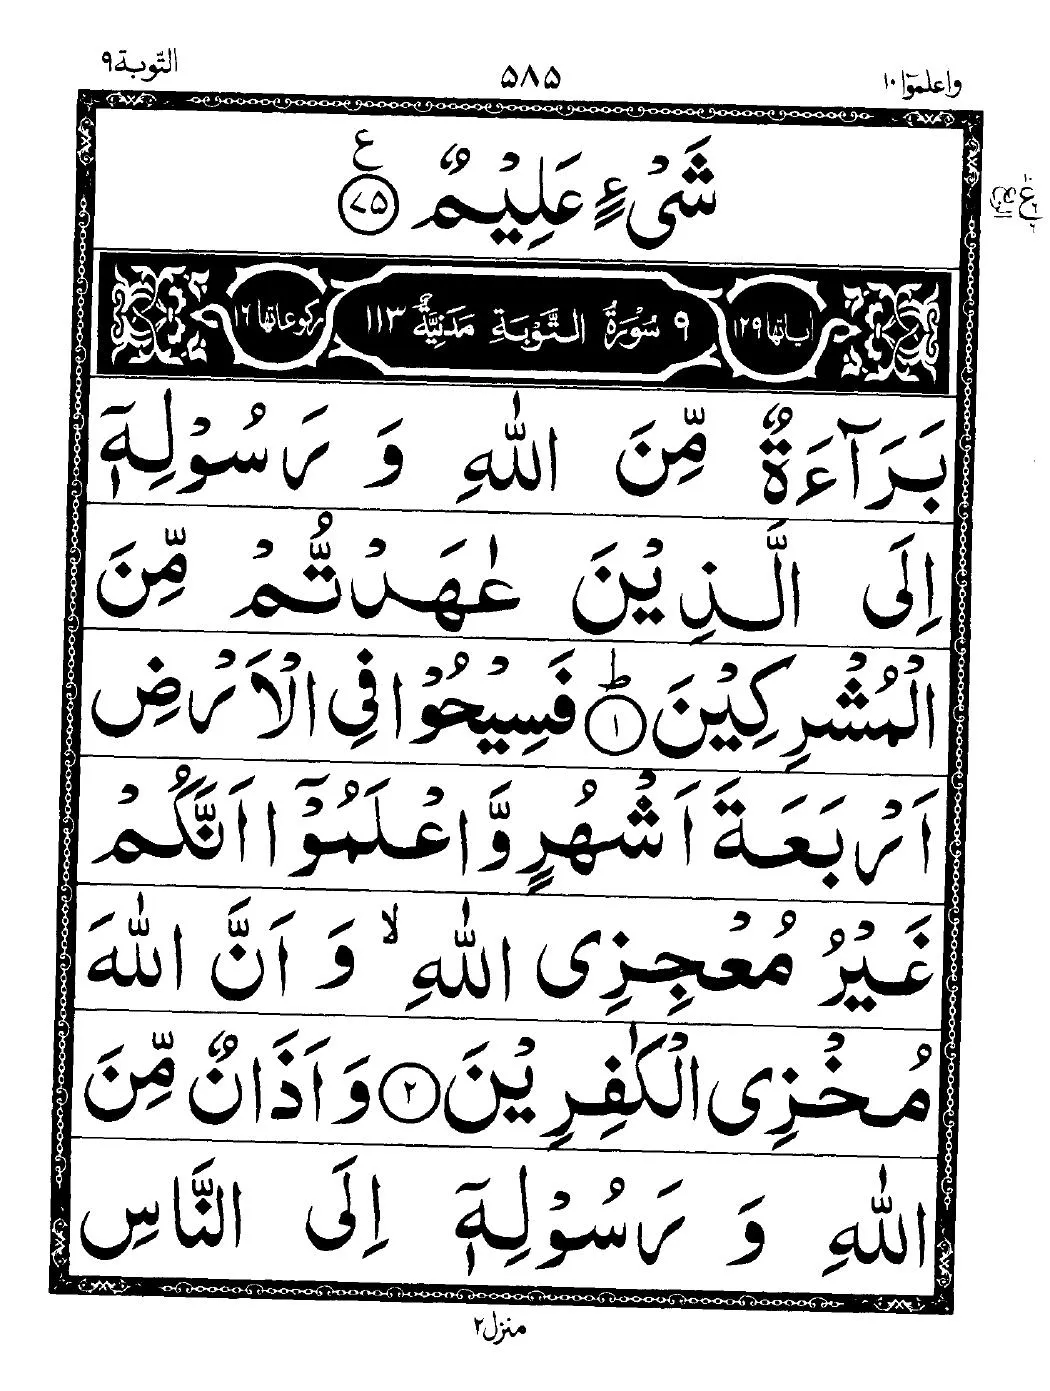 التّوبة ۹
۵۸۵
واعلموٓا ۱۰
شَیْءٍ عَلِیْمٌ ﴿۷۵﴾ ع
ع
۱۰
۶
اٰیاتها ۱۲۹
۹ سُوْرَةُ التَّوْبَةِ مَدَنِیَّةٌ ۱۱۳
رکوعاتها ۱۶
بَرَآءَةٌ مِّنَ اللّٰهِ وَ رَسُوْلِهٖۤ
اِلَی الَّذِیْنَ عٰهَدْتُّمْ مِّنَ
الْمُشْرِكِیْنَ ؕ﴿۱﴾ فَسِیْحُوْا فِی الْاَرْضِ
اَرْبَعَةَ اَشْهُرٍ وَّاعْلَمُوْۤا اَنَّكُمْ
غَیْرُ مُعْجِزِی اللّٰهِ ۙ وَ اَنَّ اللّٰهَ
مُخْزِی الْكٰفِرِیْنَ ﴿۲﴾ وَ اَذَانٌ مِّنَ
اللّٰهِ وَ رَسُوْلِهٖۤ اِلَی النَّاسِ
منزل ۲